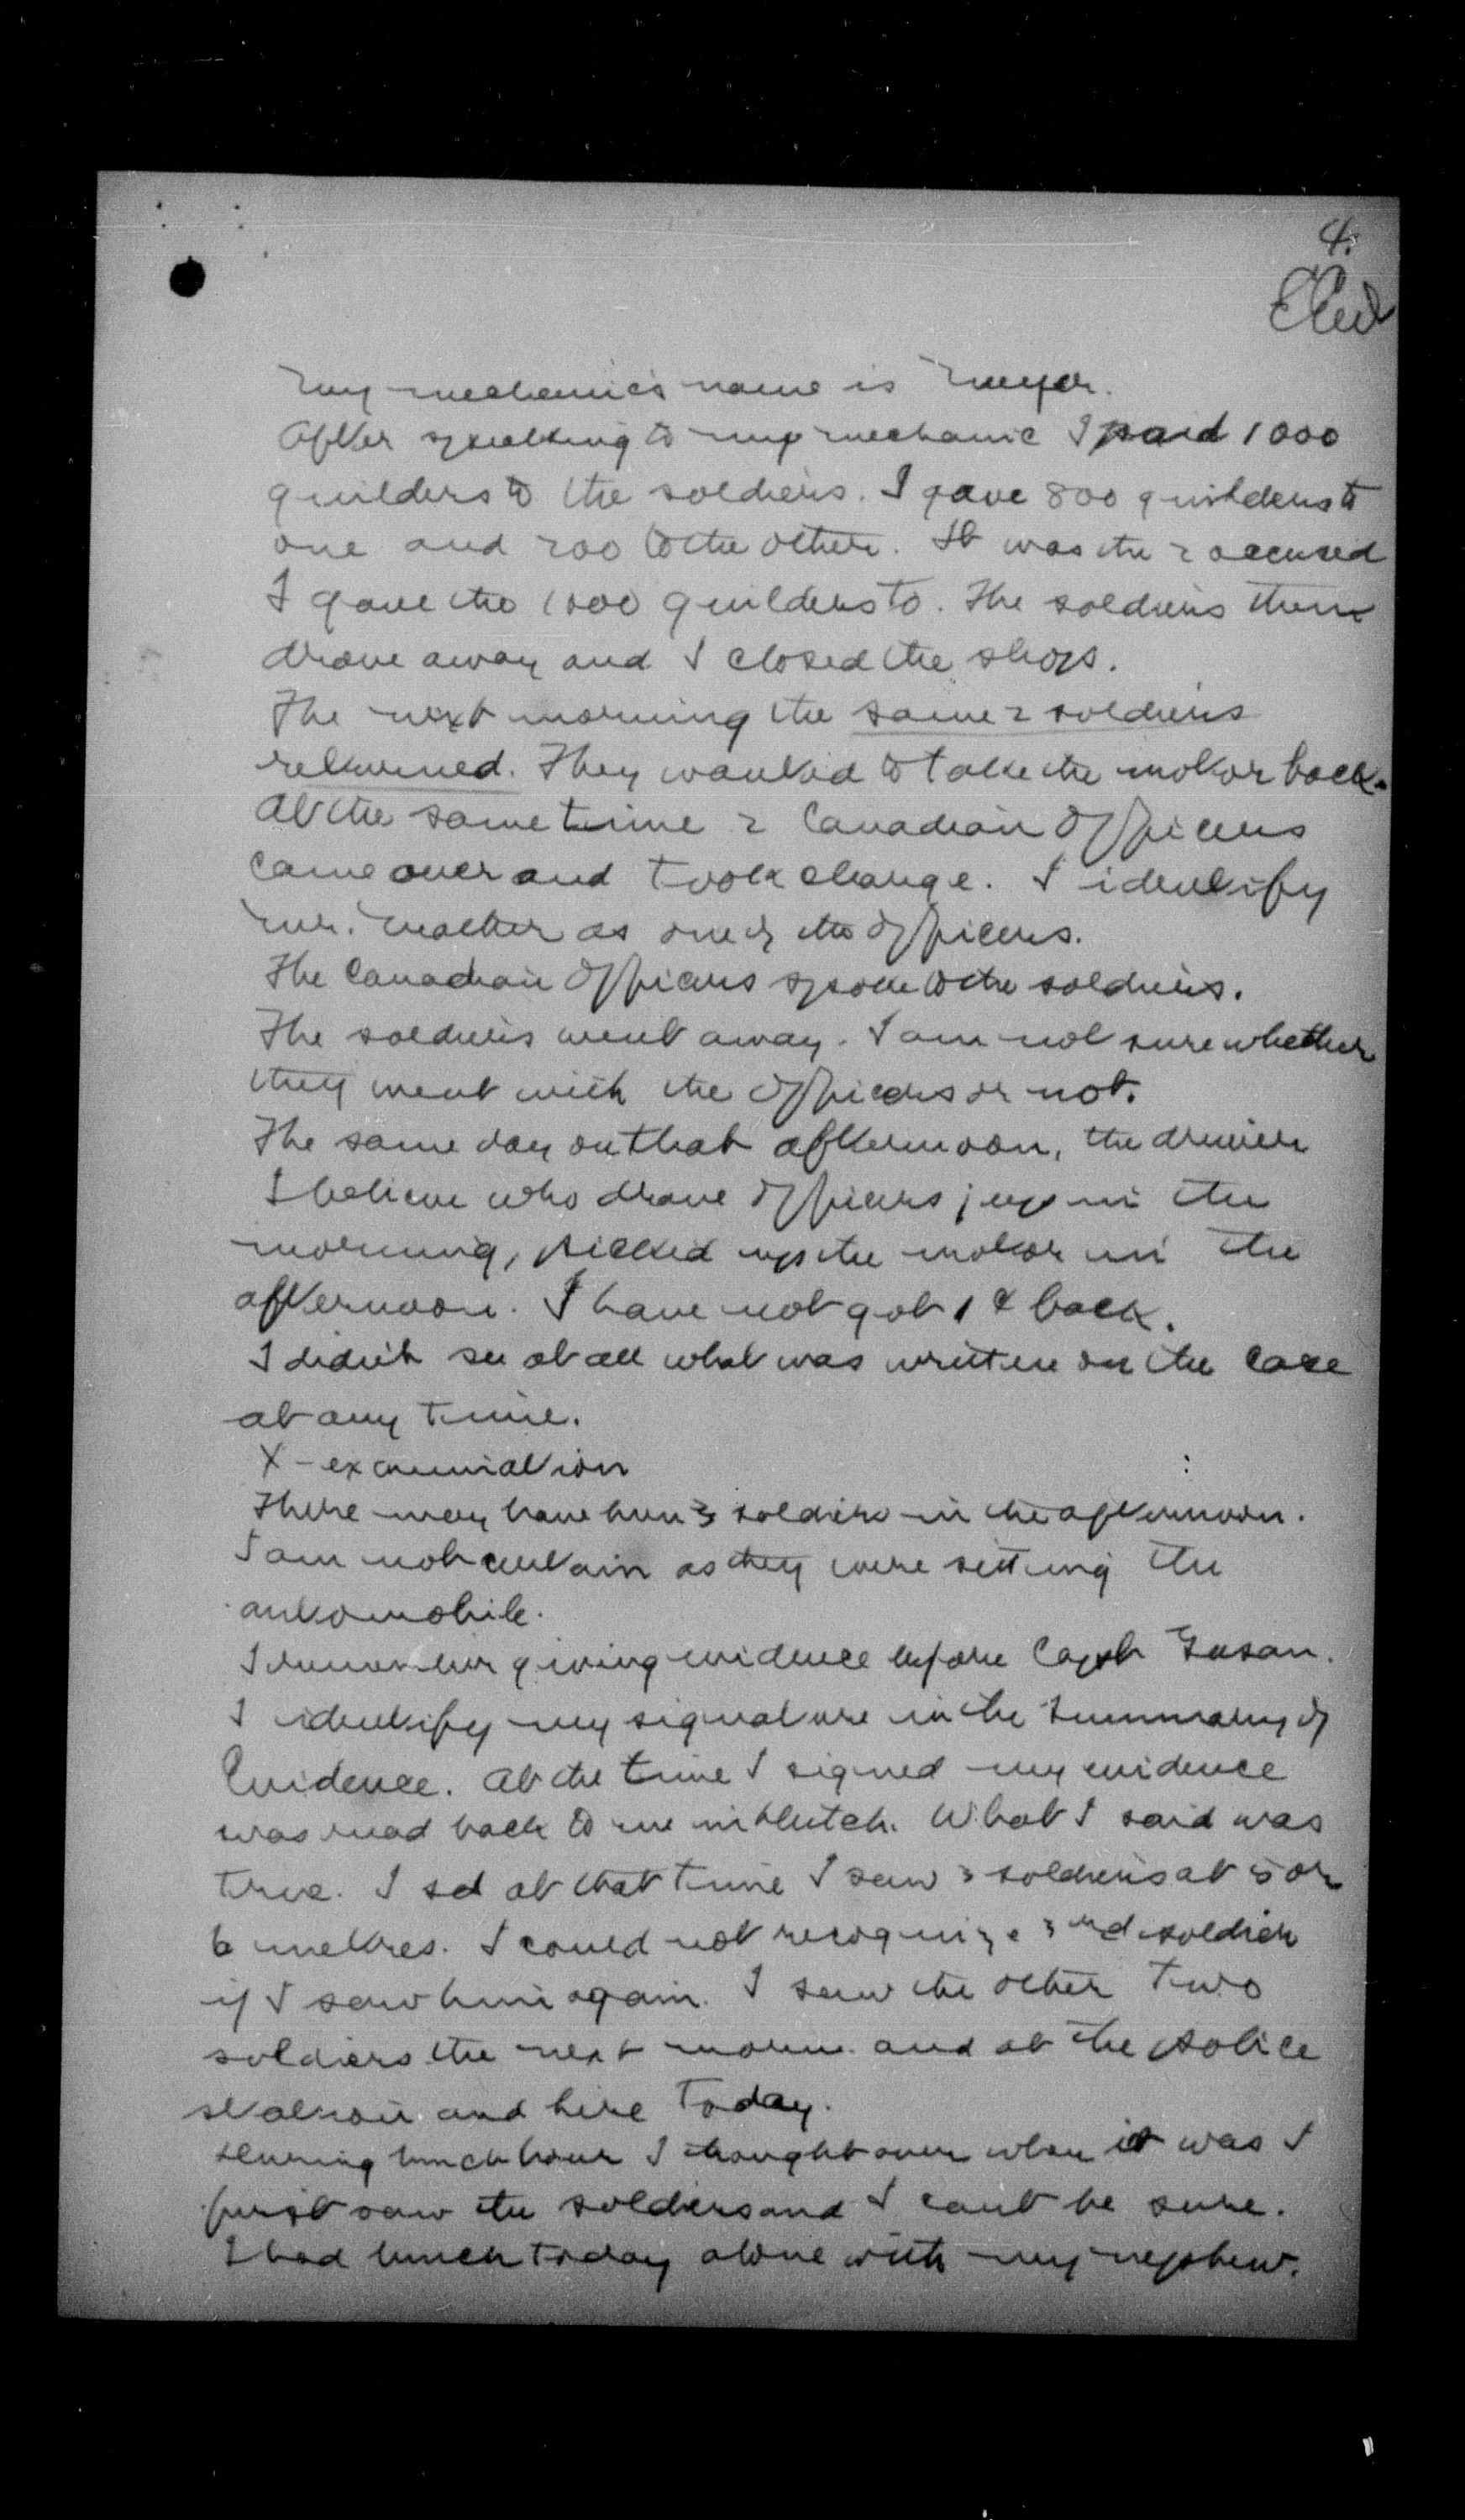 4.
My mechanic's name is Meyer.
After speaking to my mechanic I paid 1000
guilders to the soldiers. I gave 800 guilders to
one and 200 to the other. It was the 2 accused
I gave the 1000 guilders to. The soldiers then
drove away and I closed the shop.
The next morning the same 2 soldiers
returned. They wanted to take the motor back.
At the same time 2 Canadian Officers
came over and took charge. I identify
Mr. as one of the officers.
The Canadian Officers spoke to the soldiers.
The soldiers went away. I am not sure whether
they went with the officers or not.
The same day on that afternoon, the driver
I believe who drove officers jeep in the
morning, picked up the motor in the
afternoon. I have not got 1 ¢ back.
I didn't see at all what was written on the case
at any time.
X-examination
There may have been 3 soldiers in the afternoon.
I am not certain as they were sitting the
automobile.
I remember giving evidence before Capt
I identify my signature in the Summary of
Evidence. At the time I signed my evidence
was read back to me in Dutch. What I said was
true. I sd at that time I saw 3 soldiers at 5 or
6 metres. I could not recognize 3rd soldier
if I saw him again. I saw the other two
soldiers the next morn. and at the police
station and here today.
During lunch hour I thought over when it was I
first saw the soldiers and I cant be sure.
I had lunch today alone with my nephew.